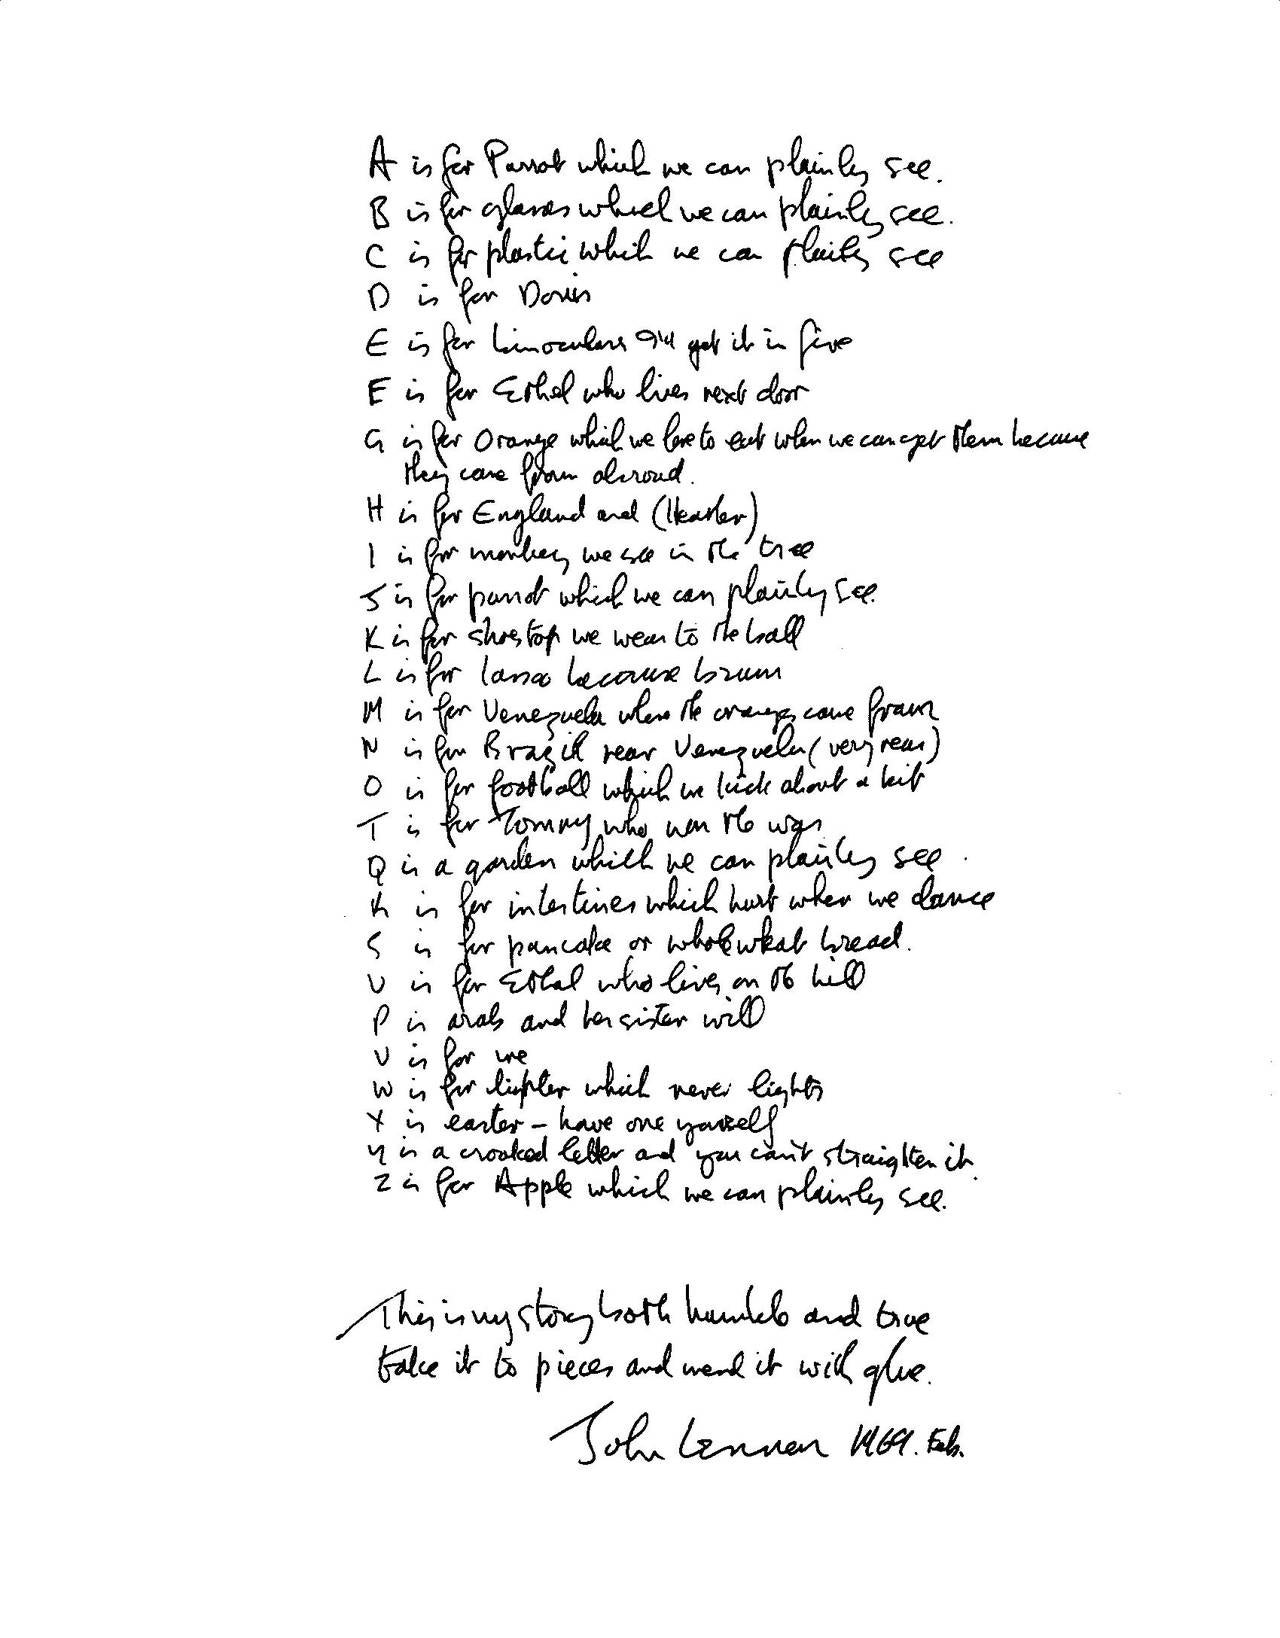 A is for Parrot which we can plainly see.
B is for glasses which we can plainly see.
C is for plastic which we can plainly see
D is for Doris
E is for binoculars I'll get it in five
F is for Ethel who lives next door
G is for Orange which we love to eat when we can get them because
they come from abroad.
H is for England and (Heather)
I is for monkey we see in the tree
J is for parrot which we can plainly see.
K is for shoetop we wear to the ball
L is for lasso because brum
M is for Venezuela where the oranges come from
N is for Brazil near Venezuela (very near)
O is for football which we kick about a bit
T is for Tommy who won the war
Q is a garden which we can plainly see.
R is for intestines which hurt when we dance
S is for pancake or wholewheat bread.
U is for Ethel who lives on the hill
P is arab and her sister will
V is for me
W is for lighter which never lights
X is easter - have one yourself
Y is a crooked letter and you can't straighten it.
Z is for Apple which we can plainly see.
This is my story both humble and true
take it to pieces and mend it with glue.
John Lennon 1969. Feb.